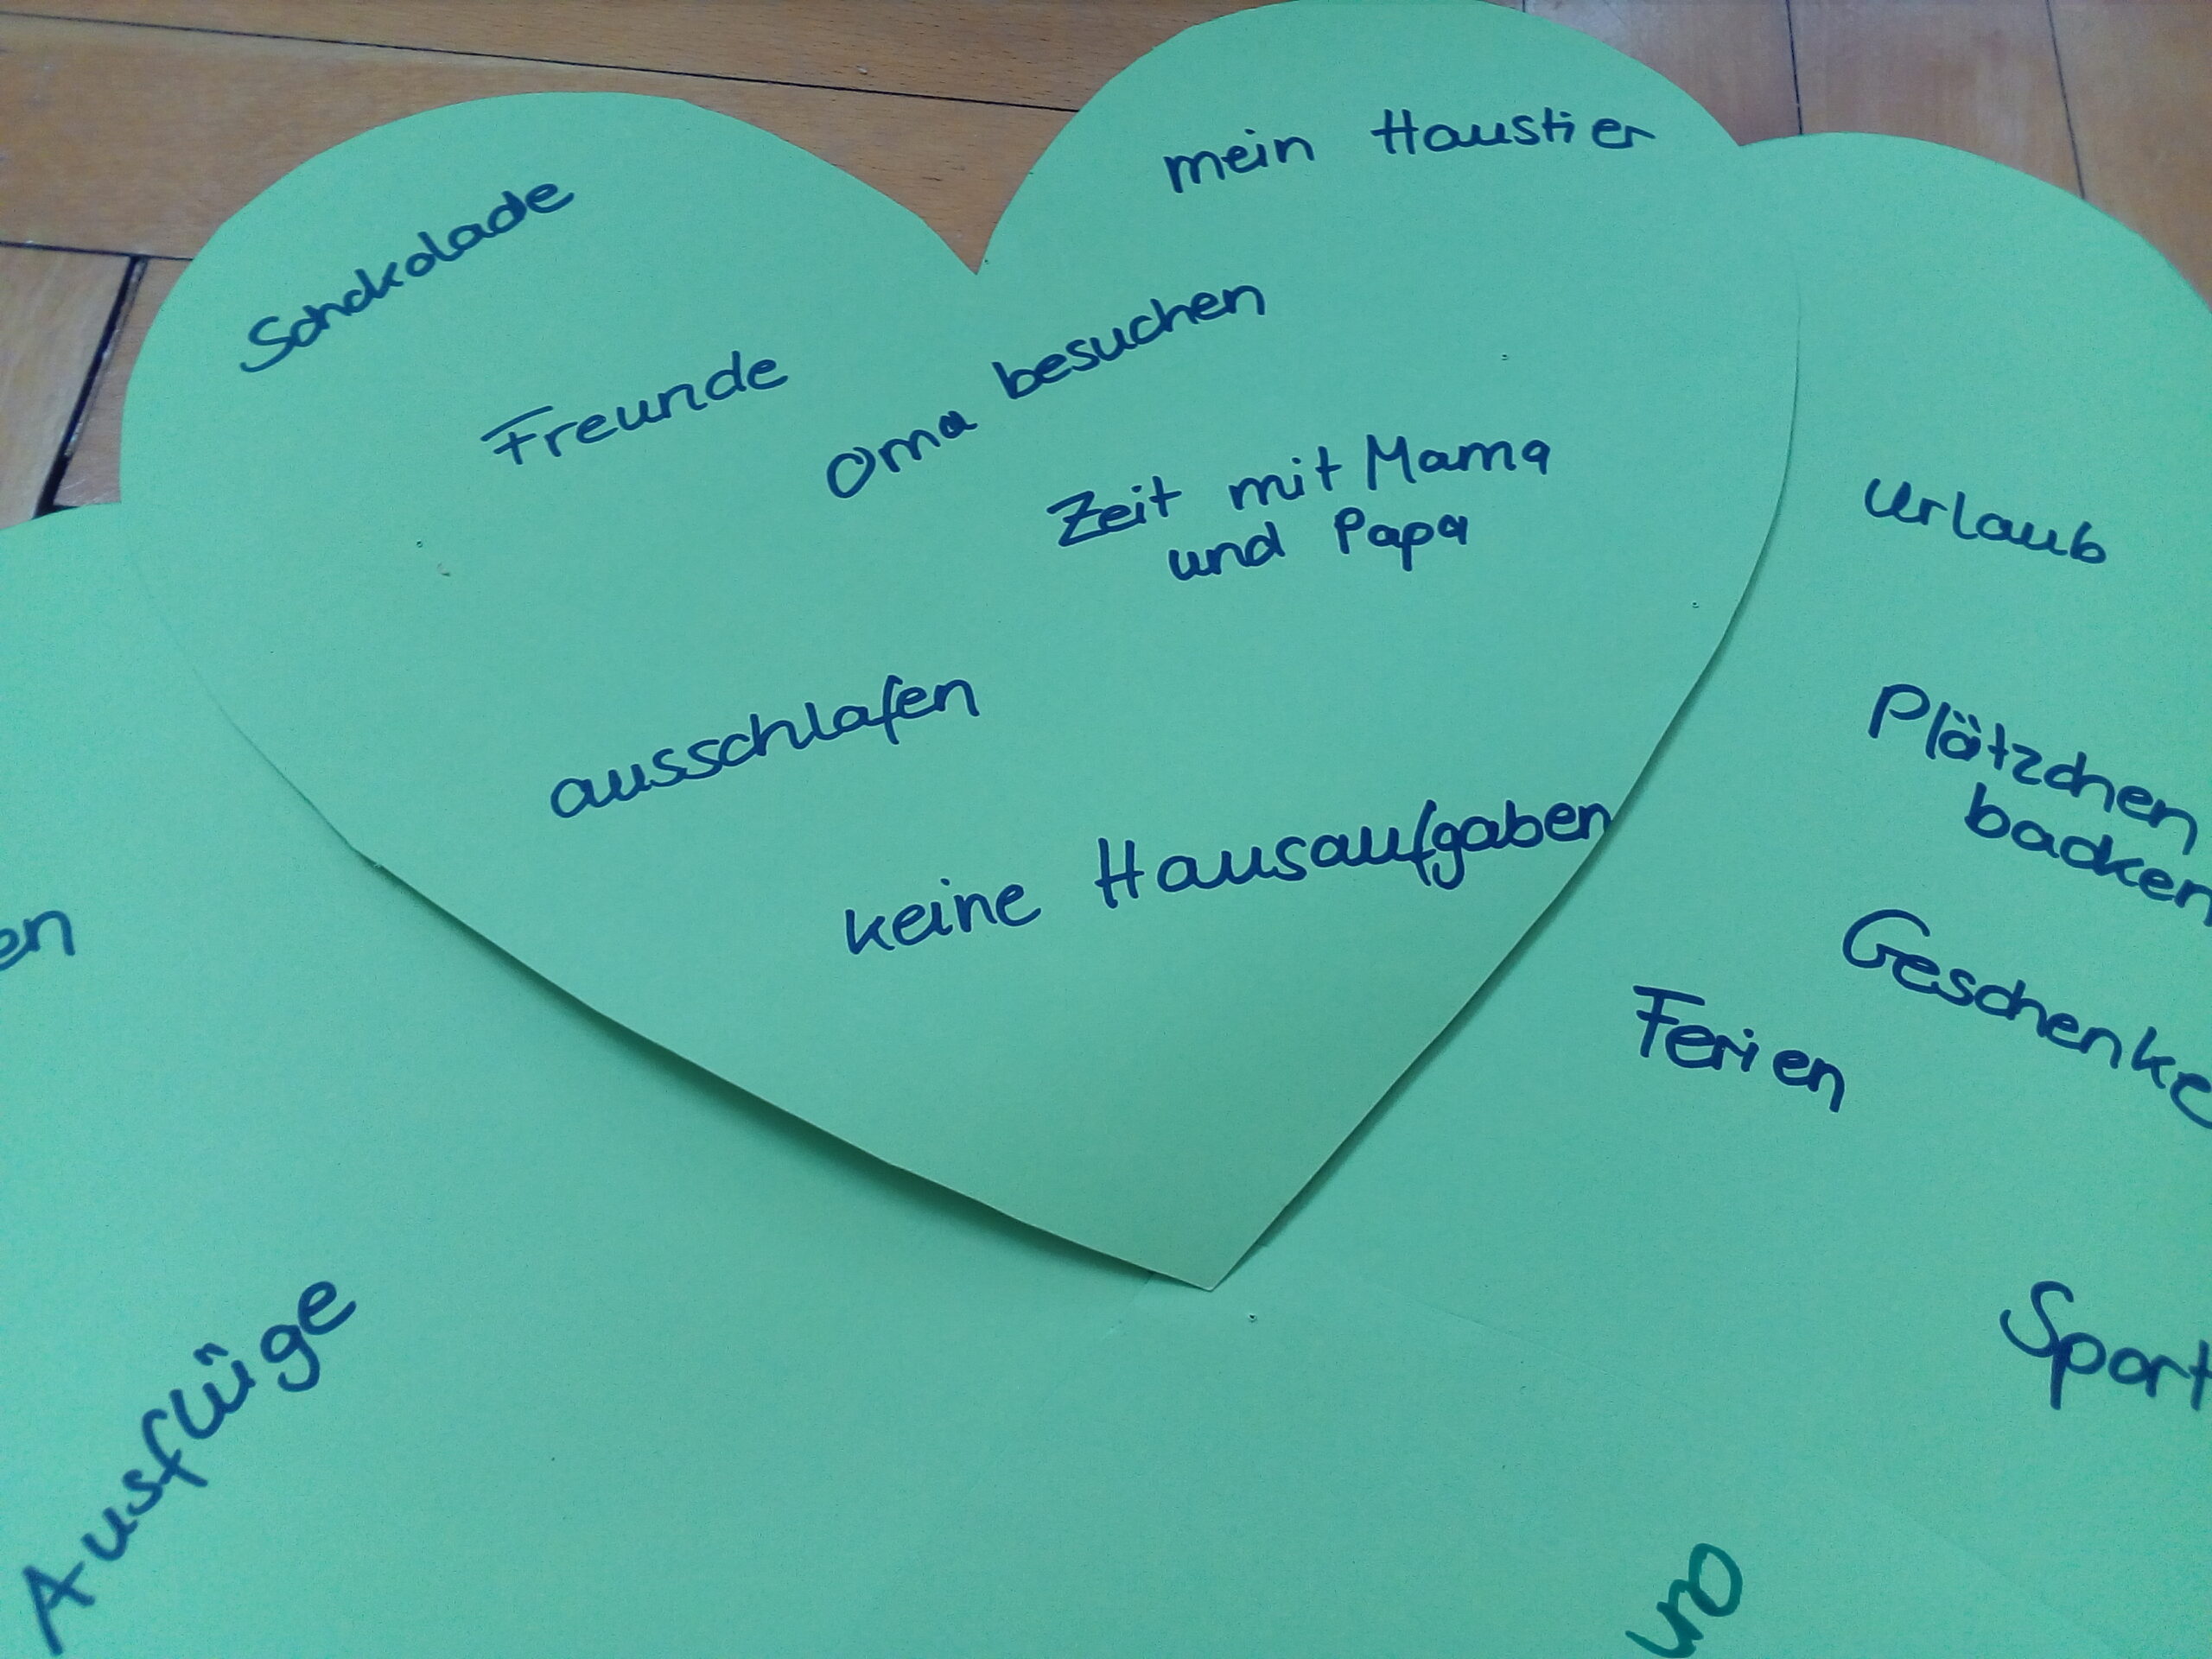 mein Haustier
Schokolade
Freunde
Oma besuchen
Zeit mit Mama
und Papa
ausschlafen
keine Hausaufgaben
Urlaub
Plätzchen
backen
Geschenke
Ferien
Sport
Ausflüge